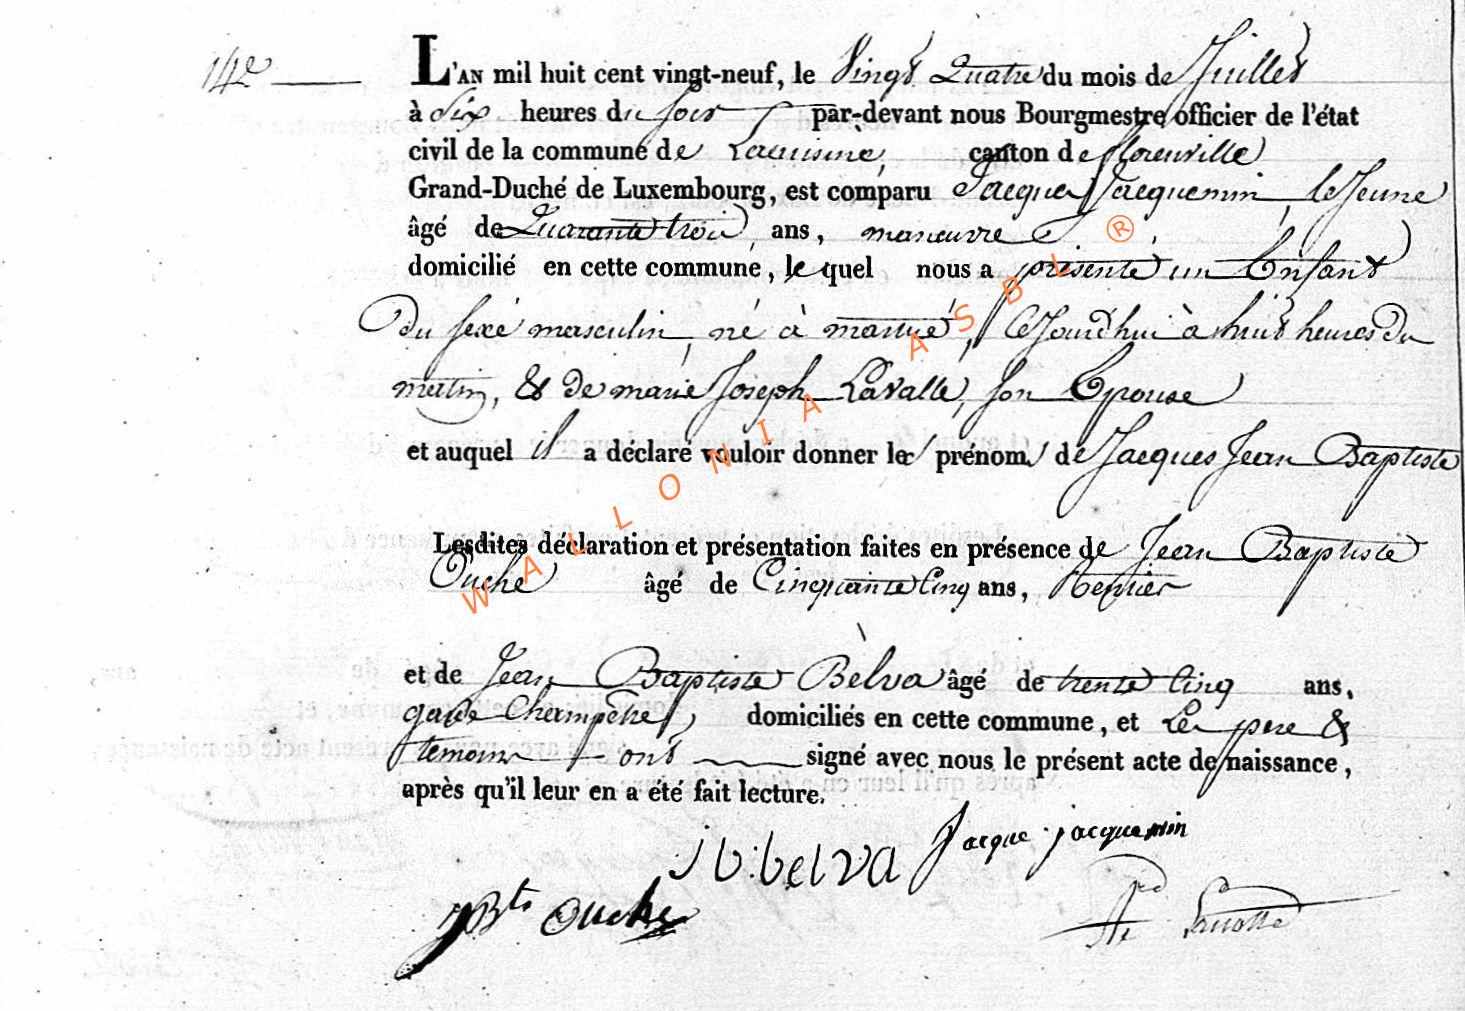 142 L'AN mil huit cent vingt-neuf, le Vingt Quatre du mois de Juillet
à Six heures du soir par-devant nous Bourgmestre officier de l'état
civil de la commune de Lacuisine, canton de florenville
Grand-Duché de Luxembourg, est comparu Jacque Jacquemin, le Jeune
âgé de Quarante trois ans, maneuvre
domicilié en cette commune, le quel nous a présenté un Enfant
Du sexe masculin, né à martué, Cejourd'hui à huit heures du
matin, & de marie Joseph Lavalle, son Epouse
et auquel il a déclaré vouloir donner les prénoms de Jacques Jean Baptiste
Lesdites déclaration et présentation faites en présence de Jean Baptiste
Ouche âgé de Cinquante Cinq ans, Rentier
et de Jean Baptiste Belva âgé de trente Cinq ans,
garde Champêtre, domiciliés en cette commune, et Le pere &
temoins ont signé avec nous le présent acte de naissance,
après qu'il leur en a été fait lecture.
jb. belva Jacque jacquemin
JBte Ouche
WALLONIA ASBL ®